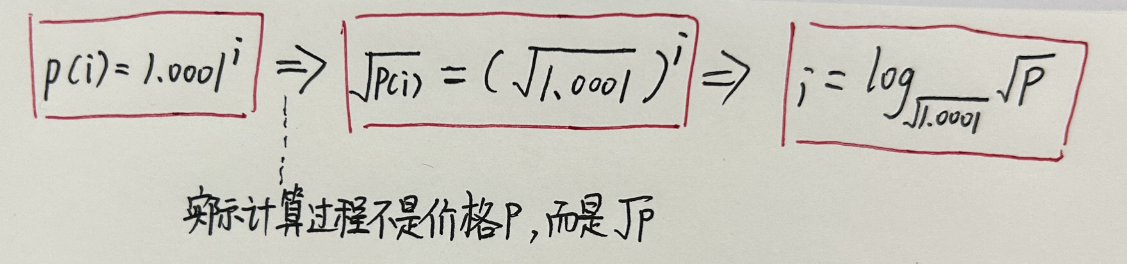 p(i) = 1.0001^i ⇒ √P(i) = (√1.0001)^i ⇒ i = log_√1.0001 √P
实际计算过程不是价格P,而是√P